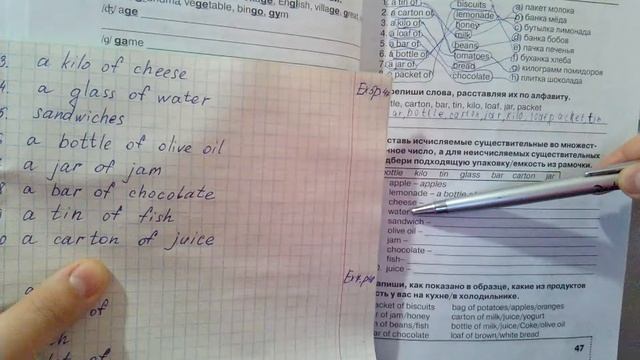 /dʒ/ age
vegetable, bingo, gym
English, village, great
/g/ game
3. a kilo of cheese
4. a glass of water
5. sandwiches
6 a bottle of olive oil
7 a jar of jam
8 a bar of chocolate
9 a tin of fish
10 a carton of juice
Ex.5p4
Ex.7.p4
1. a tin of
2. a carton of
3. a kilo of
4. a loaf of
5. a bar of
6. a bottle of
7. a jar of
packet of
biscuits
lemonade
honey
milk
beans
tomatoes
bread
chocolate
a) пакет молока
b) банка мёда
c) бутылка лимонада
d) банка бобов
e) пачка печенья
f) буханка хлеба
g) килограмм помидоров
h) плитка шоколада
репиши слова, расставляя их по алфавиту.
tle, carton, bar, tin, kilo, loaf, jar, packet
ar, bottle, carton, jar, kilo, loaf, packet, tin
ставь исчисляемые существительные во множест-
нное число, а для неисчисляемых существительных
дбери подходящую упаковку/емкость из рамочки.
bottle kilo tin glass bar carton jar
apple – apples
lemonade – a bottle of
cheese –
water
sandwich –
olive oil –
jam –
chocolate –
fish–
juice –
апиши, как показано в образце, какие из продуктов
сть у вас на кухне/в холодильнике.
acket of biscuits bag of potatoes/apples/oranges
r of jam/honey carton of milk/juice/yogurt
n of beans/fish bottle of milk/juice/Coke/olive oil
ar of chocolate loaf of brown/white bread
47